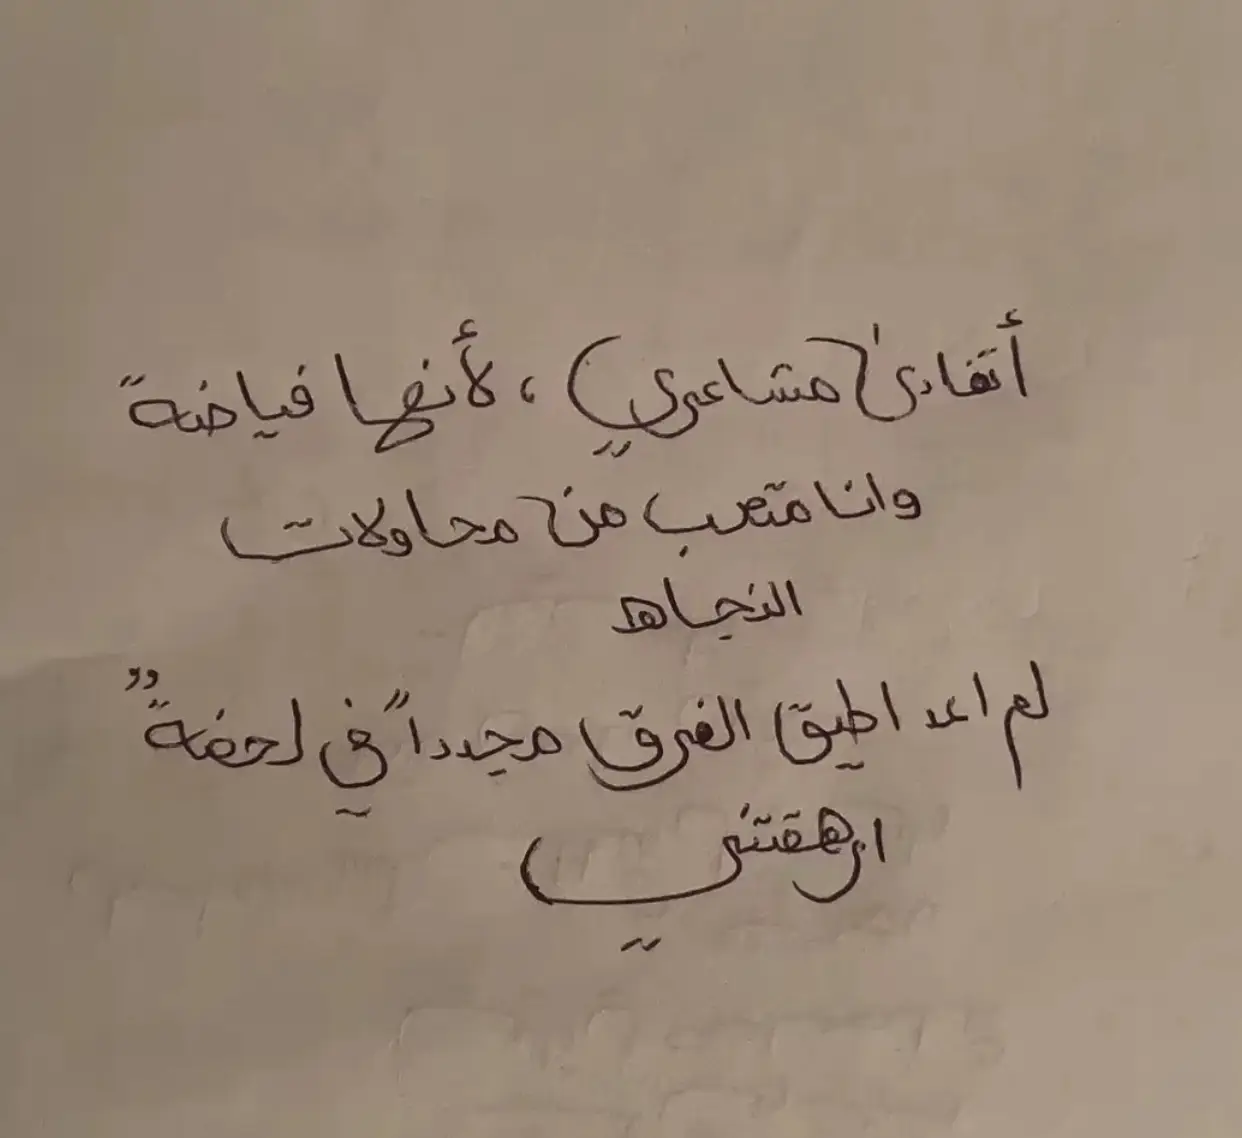 أتفادى مشاعري ، لأنها فياضة
وانا متعب من محاولات
النجاه
لم اعد اطيق الغرق مجدداً في لحضة
ارهقتني